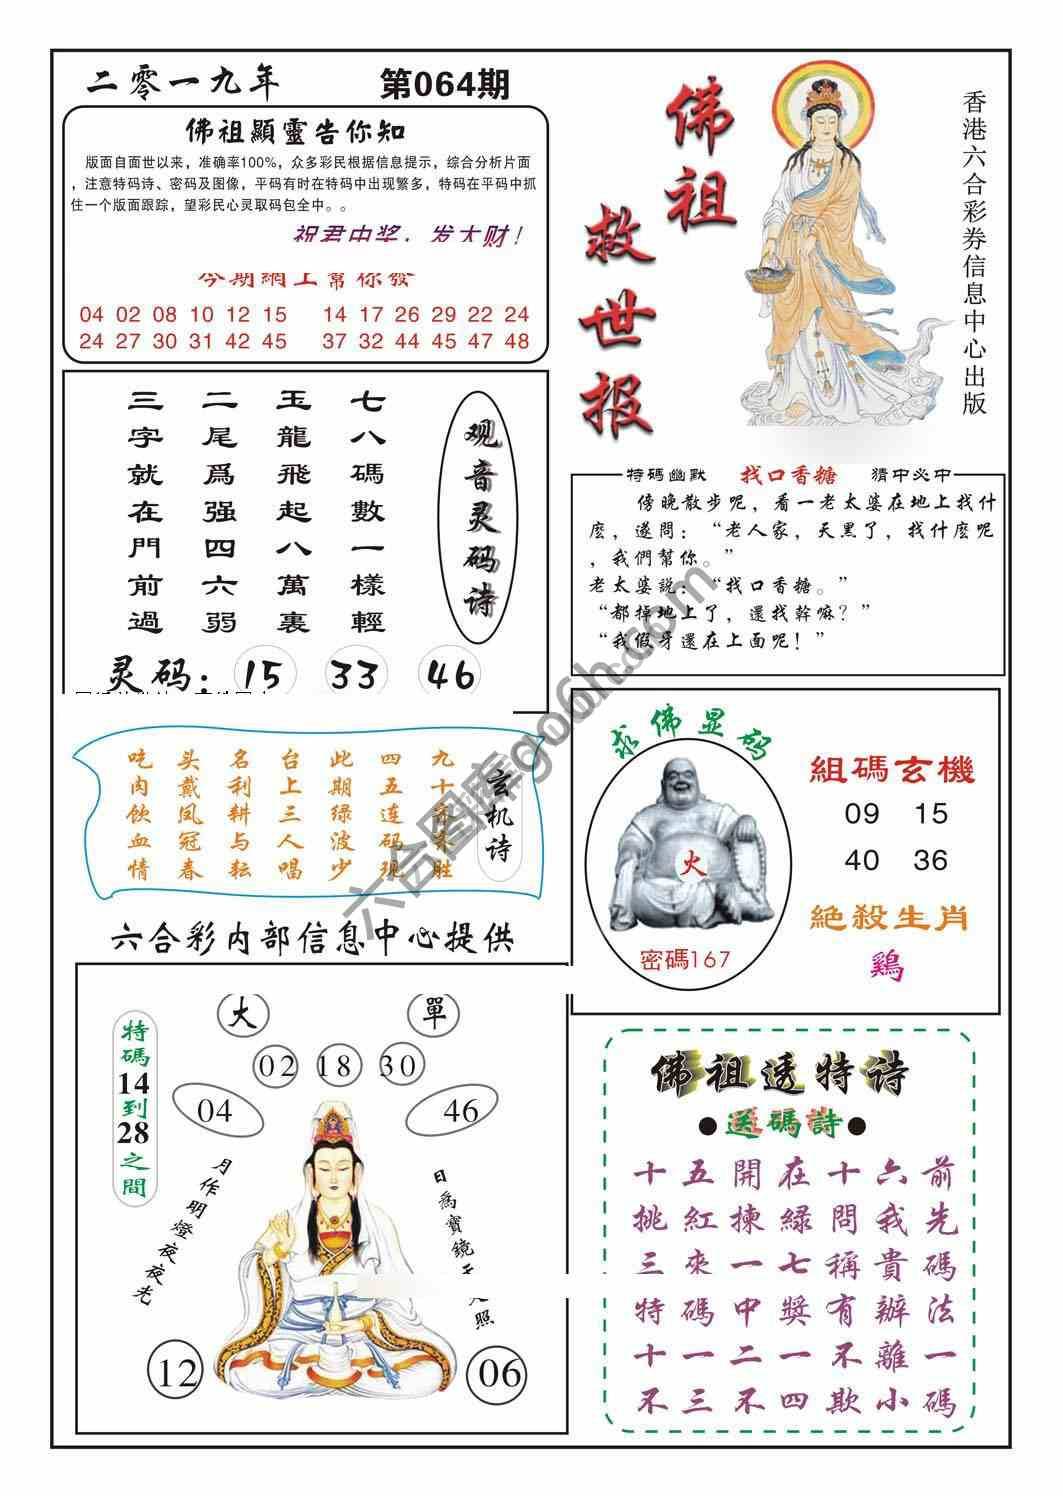 二零一九年 第064期
佛祖顯靈告你知
版面自面世以来，准确率100%，众多彩民根据信息提示，综合分析片面
，注意特码诗、密码及图像，平码有时在特码中出现繁多，特码在平码中抓
住一个版面跟踪，望彩民心灵取码包全中。。
祝君中奖，发大财！
今期網上幫你發
04 02 08 10 12 15 14 17 26 29 22 24
24 27 30 31 42 45 37 32 44 45 47 48
佛祖救世报
香港六合彩券信息中心出版
观音灵码诗
七八碼數一樣輕
玉龍飛起八萬裏
二尾爲强四六弱
三字就在門前過
灵码：15 33 46
特碼幽默 找口香糖 猜中必中
傍晚散步呢，看一老太婆在地上找什
麽，遂問：“老人家，天黑了，找什麽呢
，我們幫你。”
老太婆説：“找口香糖。”
“都掉地上了，還找幹嘛？”
“我假牙還在上面呢！”
玄机诗
九十
四五连码现
此期绿波少
台上三人唱
名利耕与耘
头戴凤冠春
吃肉饮血情
求佛显码
火
密碼167
組碼玄機
09 15
40 36
絶殺生肖
鷄
六合彩内部信息中心提供
大 單
02 18 30
04 46
特碼14到28之間
月作明燈夜夜光
日爲寶鏡
照
12 06
佛祖透特诗
●送碼詩●
十五開在十六前
挑紅揀緑問我先
三來一七稱貴碼
特碼中獎有辦法
十一二一不離一
不三不四欺小碼
六合图库go6h.com